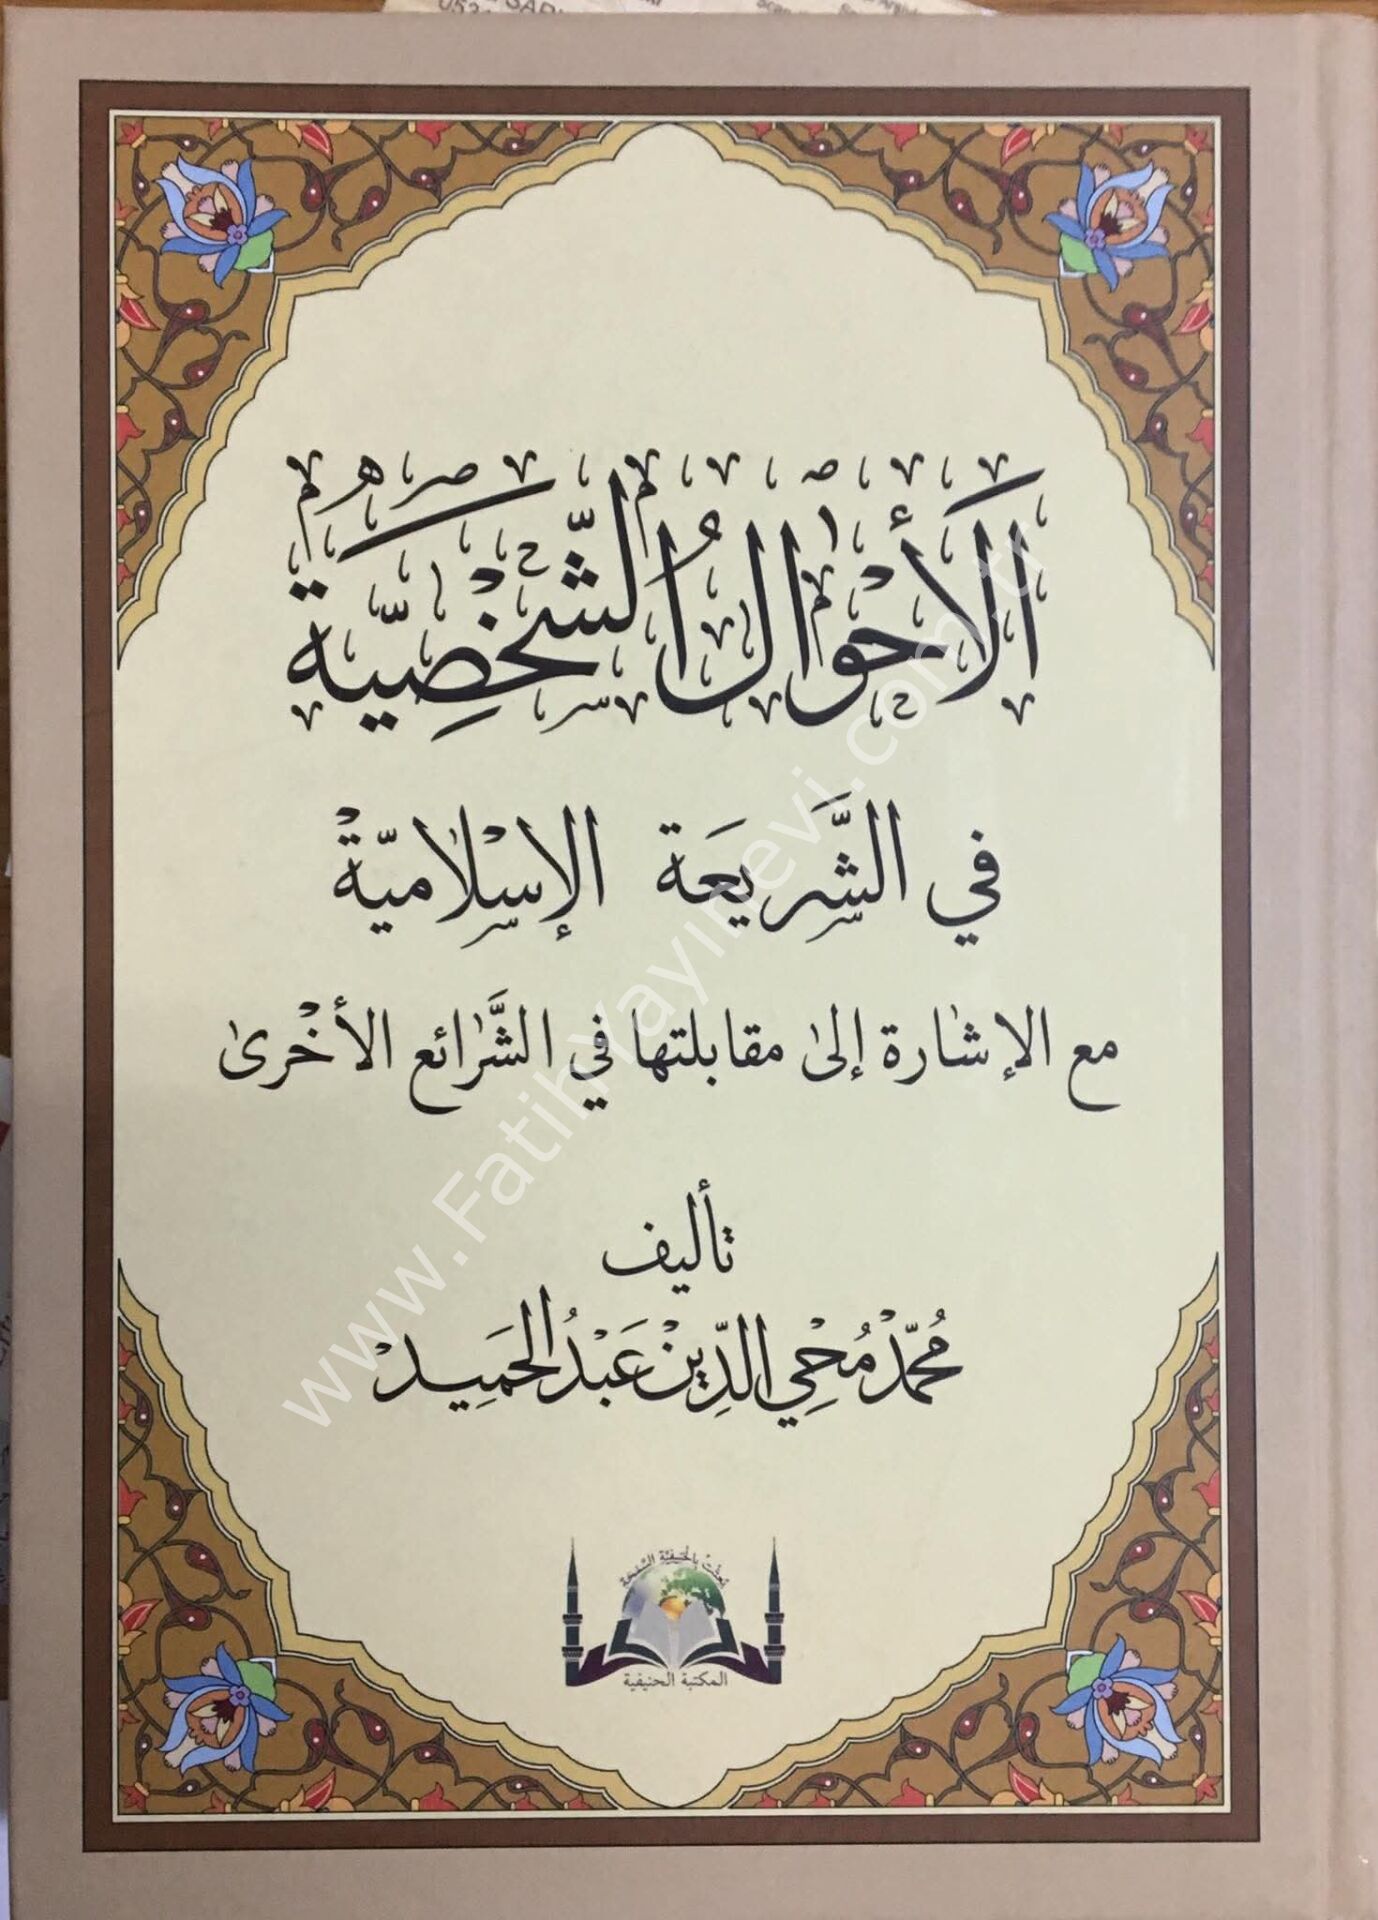 الأَحْوَالُ الشَّخْصِيَّة
في الشَّرِيعَة الإِسْلَاميَّة
مع الإشارة إلى مقابلتها في الشَّرَائع الأخْرى
تأليف
مُحَمَّد مُحْيِي الدِّين عَبْدُ الحَمِيد
بُعِثْتُ بِالْحَنِيفِيَّةِ السَّمْحَة
المكتبة الحنيفية
www.FatihYayinevi.com.tr